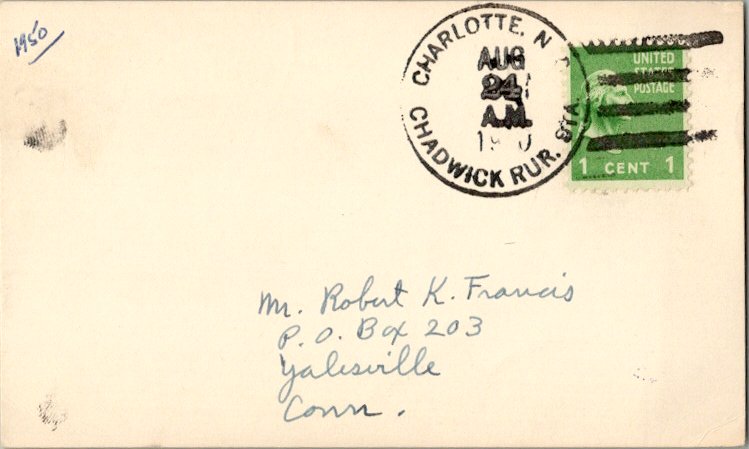 1950
CHARLOTTE, N.
AUG
24
A.M.
CHADWICK RUR. STA.
UNITED
STATES
POSTAGE
1 CENT 1
Mr. Robert K. Francis
P.O. Box 203
Yalesville
Conn.